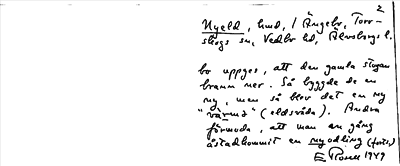 2
Nyeld, hmd, i Ängebr, Torr-
skogs sn, Vedbo hd, Älvsborgs l.
bo uppges, att den gamla stugan
brann ner. Så byggde de en
ny, men så blev det en ny
"värme" (eldsvåda). Andra
förmoda, att man en gång
åstadkommit en nyodling (forts.)
E Rosell 1949